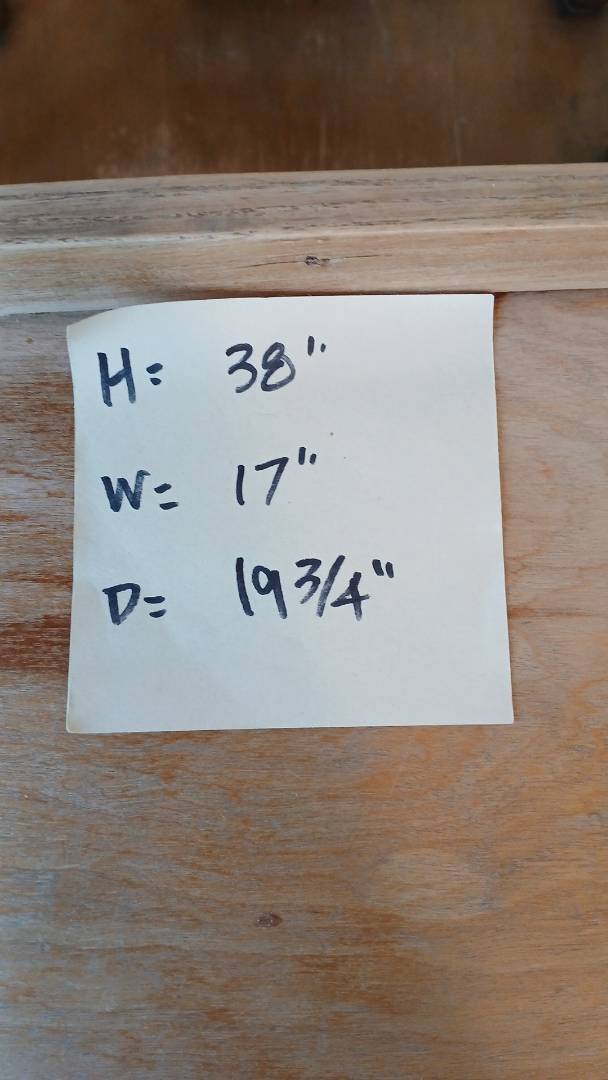 H= 38"
W= 17"
D= 19 3/4"